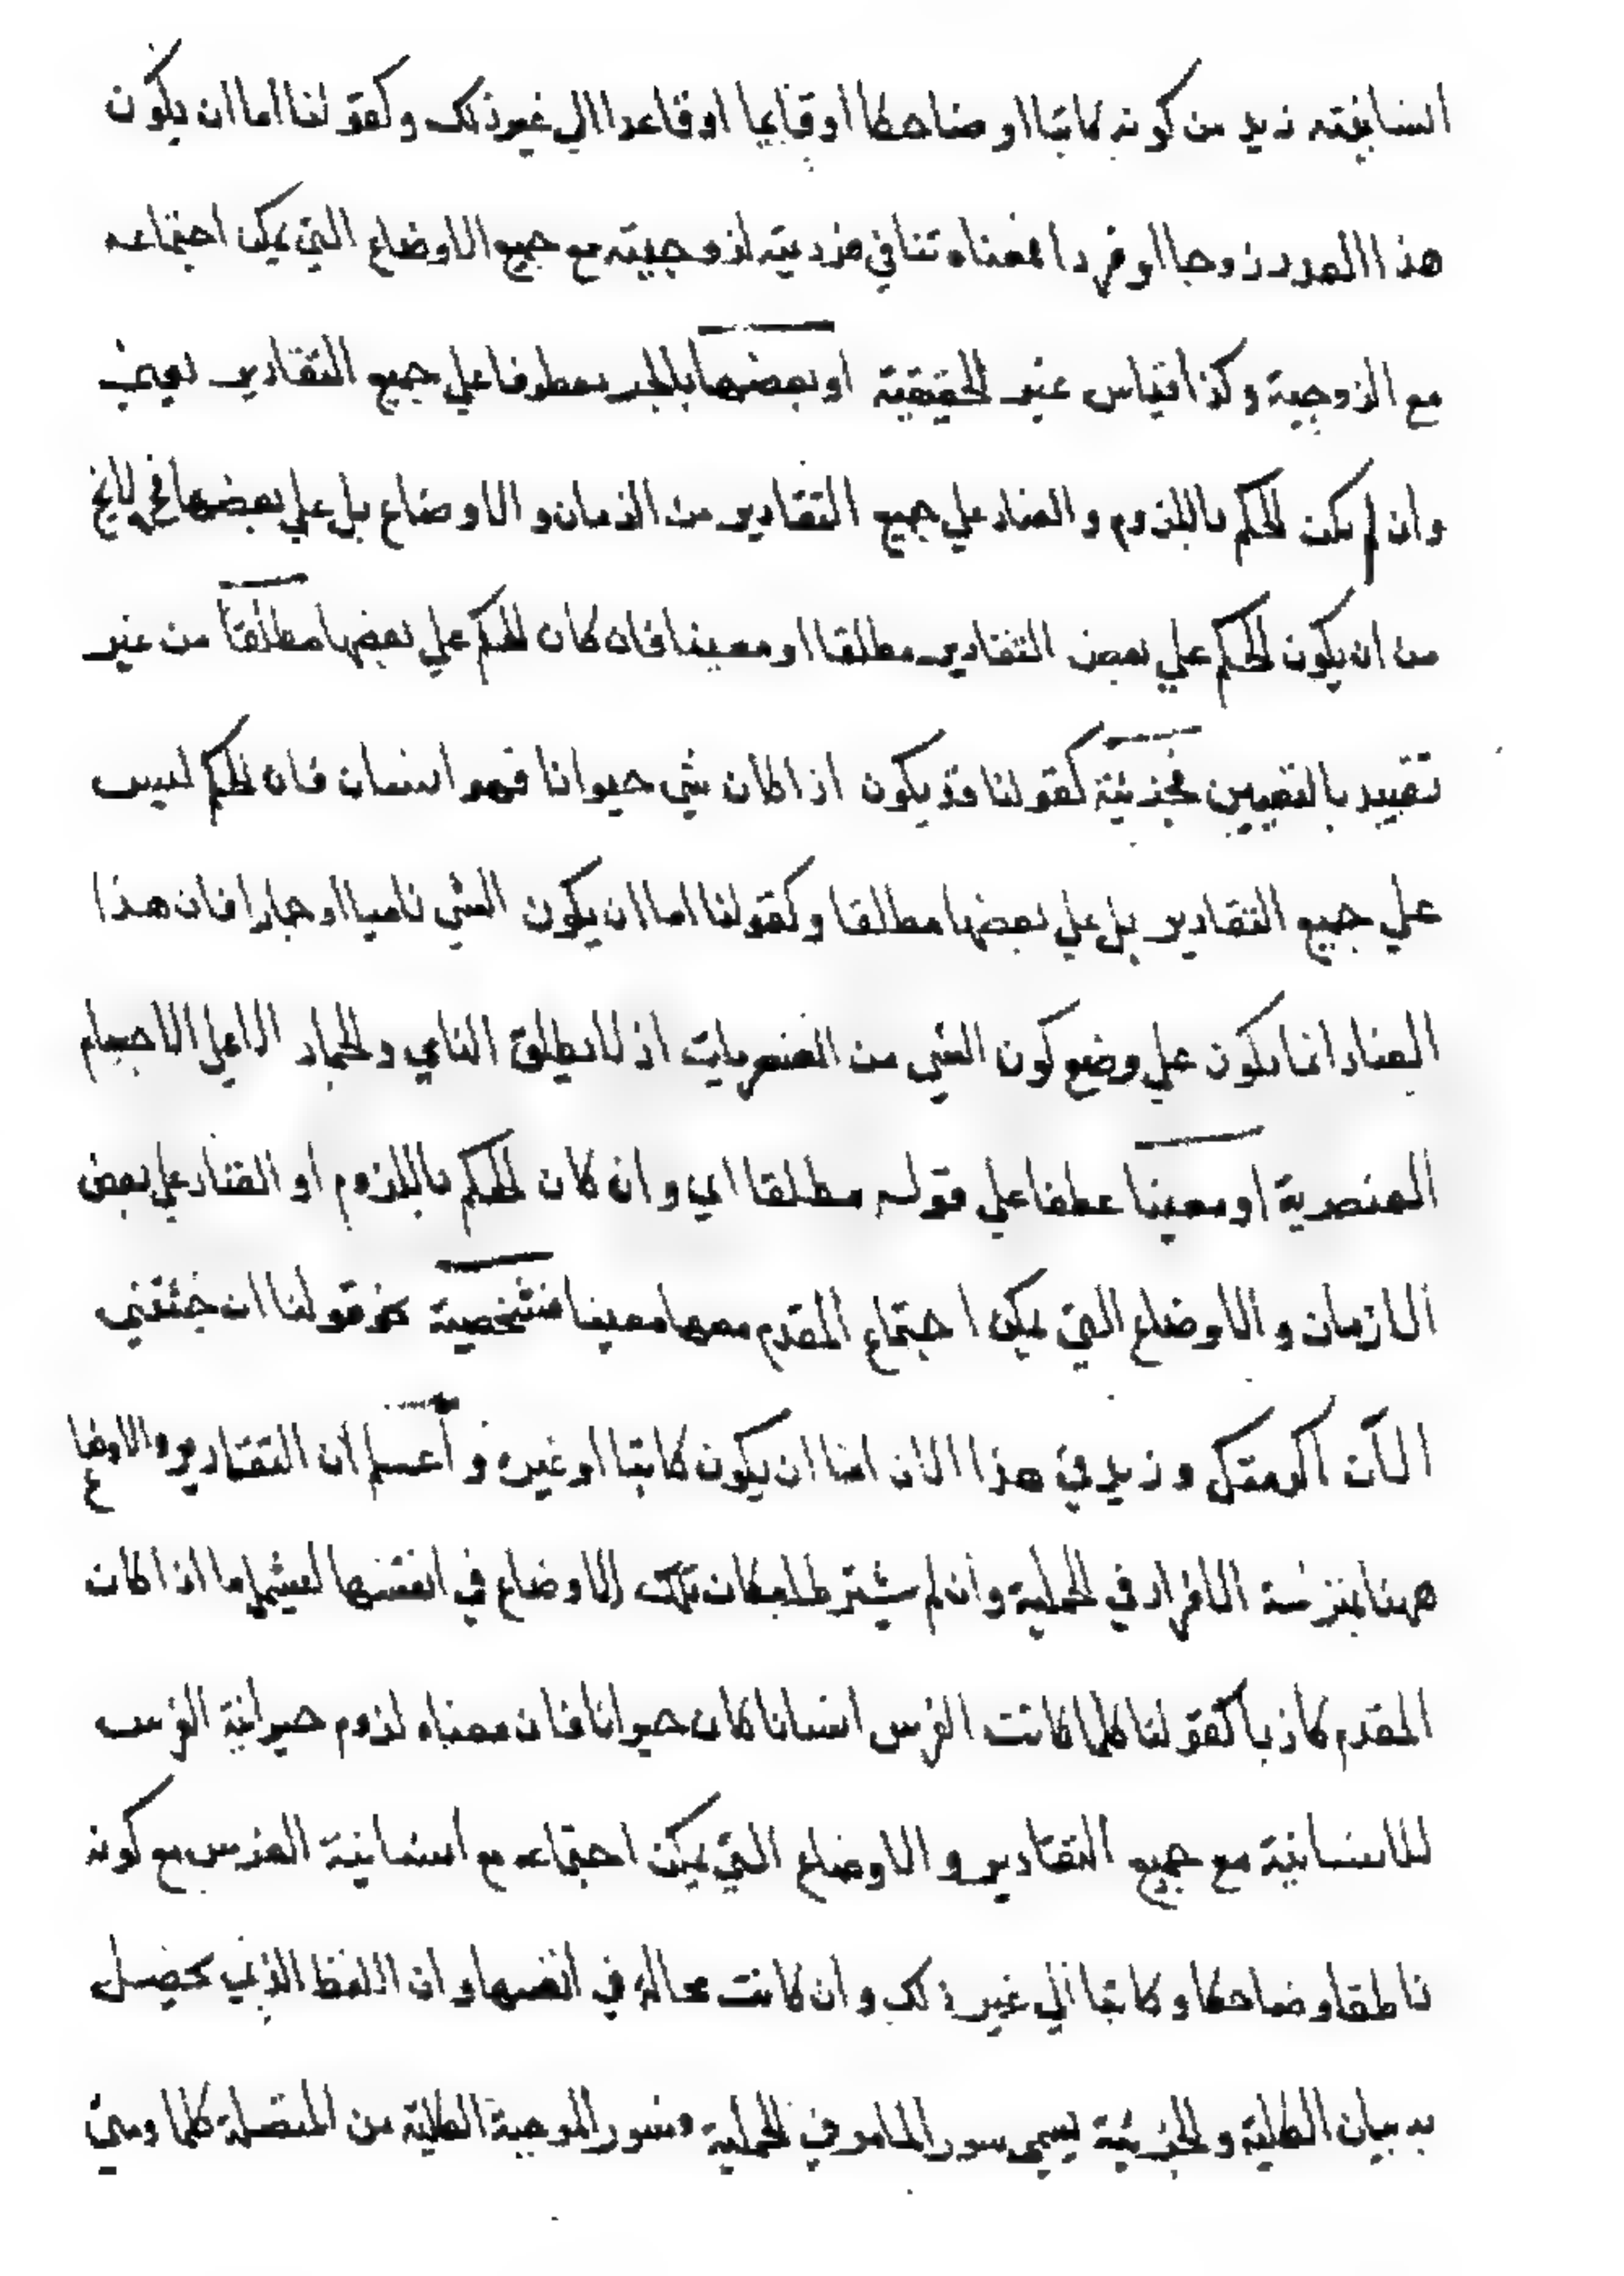 انسانيته زيد من كونه كاتبا او ضاحكا او قايما او قاعدا الي غير ذلك وكقولنا اما ان يكون
هذا العدد زوجا او فردا فمعناه تنافي فردية لزوجيته مع جميع الاوضاع التي يمكن اجتماعه
مع الزوجية وكذا قياس غير الحقيقية او بعضها بالجر معطوفا علي جميع التقادير يعني
وان لم يكن الحكم باللزوم والعناد علي جميع التقادير من الزمان والاوضاع بل علي بعضها فح لا يخ
من ان يكون الحكم علي بعض التقادير مطلقا او معينا فان كان الحكم علي بعضها مطلقا من غير
تقييد بالتعيين فجزئية كقولنا قد يكون اذا كان شي حيوانا فهو انسان فان الحكم ليس
علي جميع التقادير بل علي بعضها مطلقا وكقولنا اما ان يكون الشي ناميا او جمادا فان هذا
العناد انما يكون علي وضع كون الشي من العنصريات اذ لا يطلق النامي والجماد الا علي الاجسام
العنصرية او معينا عطفا علي قوله مطلقا اي وان كان الحكم باللزوم او العناد علي بعض
الازمان والاوضاع التي يمكن اجتماع المقدم معها معينا فشخصية نحو قولنا ان جئتني
الآن اكرمتك وزيد في هذا الان اما ان يكون كاتبا او غيره واعلم ان التقادير والاوضاع
ههنا بمنزلة الافراد في الحملية وان لم يشترط امكان تلك الاوضاع في انفسها ليشمل ما اذا كان
المقدم كاذبا كقولنا كلما كانت الفرس انسانا كان حيوانا فان معناه لزوم حيوانية الفرس
للانسانية مع جميع التقادير والاوضاع التي يمكن اجتماعه مع انسانية الفرس مع كونه
ناطقا وضاحكا وكاتبا الي غير ذلك وان كانت محالة في انفسها وان اللفظ الذي يحصل
به بيان الكلية والجزئية يسمي سورا لما مر في الحملية وسور الموجبة الكلية من المتصلة كلما ومتي